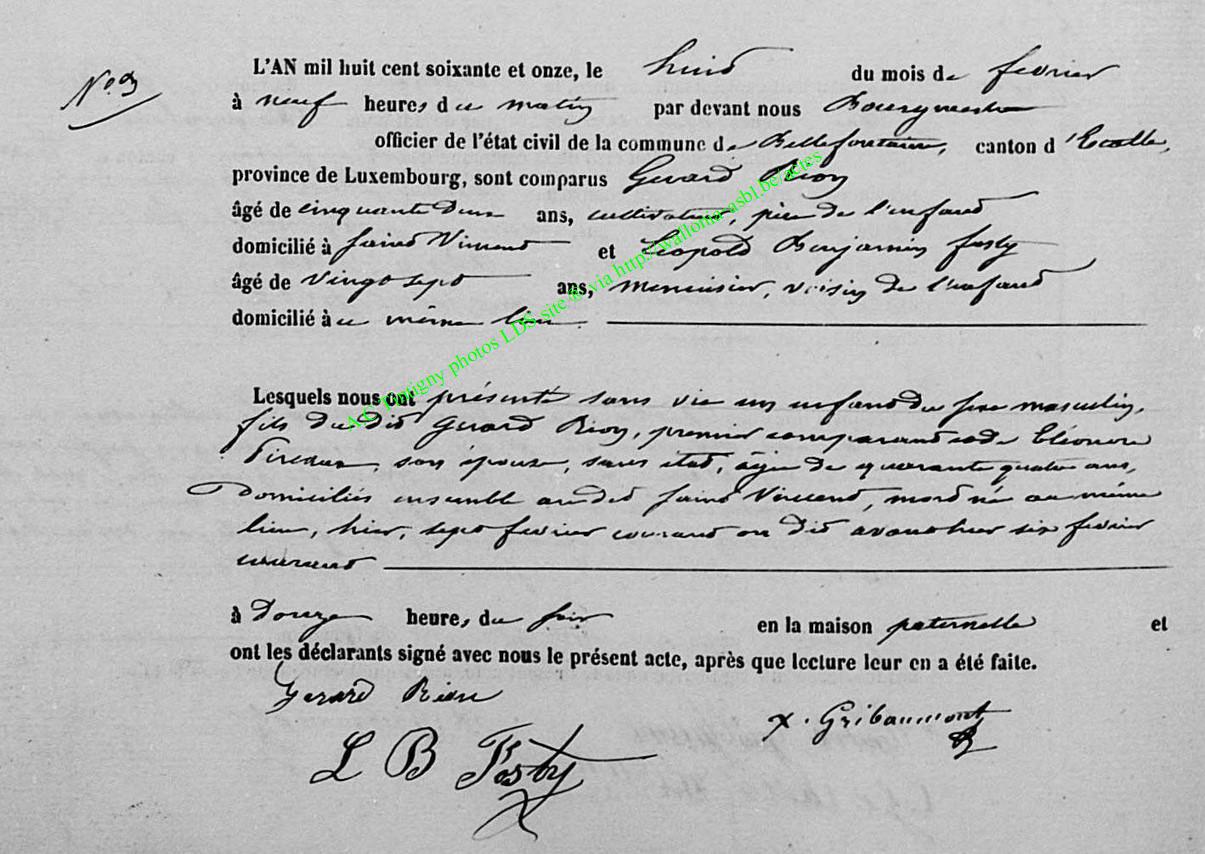 N° 3
L'AN mil huit cent soixante et onze, le huit du mois de fevrier
à neuf heures du matin par devant nous Bourgmestre
officier de l'état civil de la commune de Bellefontaine, canton d'Etalle,
province de Luxembourg, sont comparus Gerard Rion
âgé de cinquante deux ans, cultivateur, père de l'enfant
domicilié à Saint Vincent et Léopold Benjamin Festy
âgé de vingt sept ans, menuisier, voisin de l'enfant
domicilié à ce même lieu.
Lesquels nous ont présenté sans vie un enfant du sexe masculin,
fils du dit Gerard Rion, premier comparant et de Eléonore
Pireaux, son épouse, sans état, âgée de quarante quatre ans,
domiciliés ensemble au dit Saint Vincent, mort né au même
lieu, hier, sept fevrier courant ou dit avant hier six fevrier
courant
à Douze heures du soir en la maison paternelle et
ont les déclarants signé avec nous le présent acte, après que lecture leur en a été faite.
Gerard Rion
X. Gribaumont
L B Festy
A.C. Tintigny photos LDS site @ via http://wallonia-asbl.be/actes